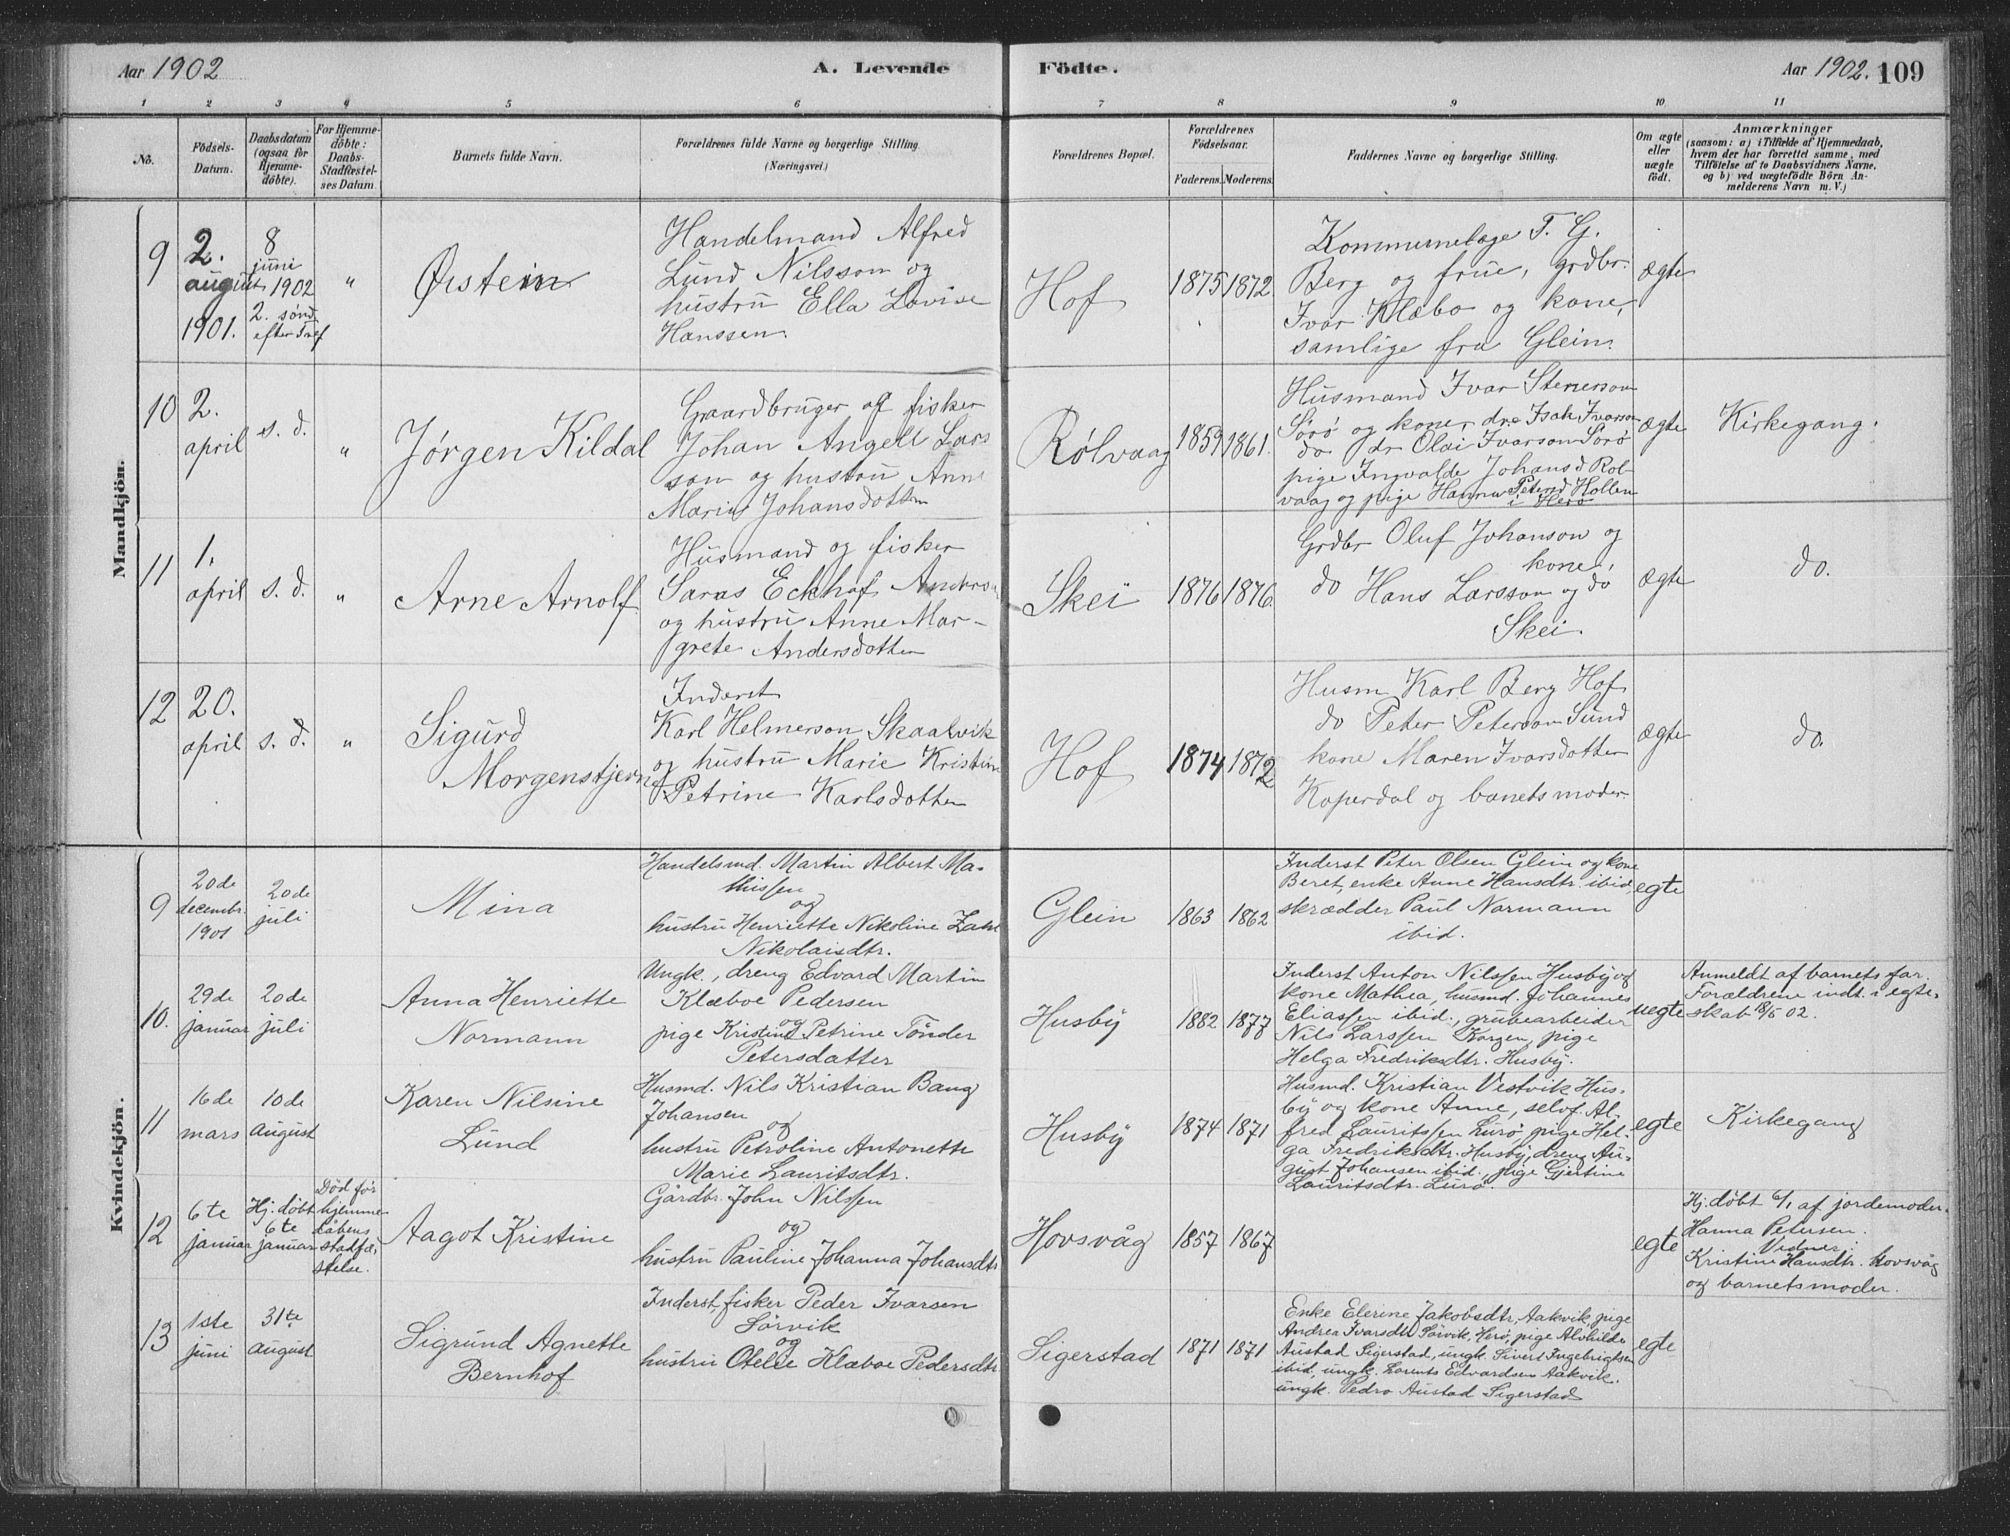 Aar 1902
A. Levende
Födte.
Aar 1902. 109
1 2 3 4 5 6 7 8 9 10 11
No.
Födsels-
Datum.
Daabsdatum
(ogsaa for
Hjemme-
döbte).
For Hjemme-
döbte:
Daabs-
Stadfæstel-
ses Datum.
Barnets fulde Navn.
Forældrenes fulde Navne og borgerlige Stilling
(Næringsvei.)
Forældrenes Bopæl.
Forældrenes
Födselsaar.
Faderens. Moderens.
Faddernes Navne og borgerlige Stilling.
Om ægte
eller
uægte
födt.
Anmærkninger
(saasom: a) i Tilfælde af Hjemmedaab,
hvem der har forrettet samme, med
Tilföielse af to Daabsvidners Navne,
og b) ved uægtefödte Börn An-
melderens Navn m. V.)
Mandkjön.
9
2.
august
1901.
8
juni
1902
2. sönd.
efter Tref
"
Øistein
Handelmand Alfred
Lund Nilsson og
hustru Ella Lovise
Hanssen.
Hof
1875 1872
Kommunelæge F. G.
Berg og frue, grdbr.
Ivar Klæbo og kone,
samlige fra Glein.
ægte
10
2.
april
s. d.
"
Jørgen Kildal
Gaardbruger og fisker
Johan Angell Lars
son og hustru Anne
Marie Johansdotter
Rølvaag
1859 1861.
Husmand Ivar Stenerson
Sörö og koner dre Isak Ivarson
do dr Olai Ivarson Sörö
pige Ingvalda Johansd Röl-
vaag og pige Hanna Petersd Hollen
i Herö
ægte
Kirkegang.
11
1.
april
s. d.
"
Arne Arnolf
Husmand og fisker
Saras Eckhof
og hustru Anne Mar-
grete Andersdotter
Skei
1876 1876.
Grdbr Oluf Johanson og
kone,
do Hans Larsson og do
Skei.
ægte
do.
12
20.
april
s. d.
"
Sigurd
Morgenstjerne
Inderst
Karl Helmerson Skaalvik
og hustru Marie Kristine
Petrine Karlsdotter
Hof
1874 1872
Husm Karl Berg Hof
do Peter Peterson Sund
kone Maren Ivarsdotter
Koperdal og banets moder.
ægte
do.
Kvindekjön.
9
20de
decembr.
1901
20de
juli
Mina
Handelsmd. Martin Albert Ma-
thissen
og
hustru Henriette Nikoline Zahl
Nikolaisdtr.
Glein
1863 1862
Inderst Peter Olsen Glein og kone
Beret, enke Anne Hansdtr. ibid,
skrædder Paul Normann
ibid.
egte
10.
29de
januar
20de
juli
Anna Henriette
Normann
Ungk., dreng Edvard Martin
Klæboe Pedersen
og
pige Kristine Petrine Tönder
Petersdatter
Husby
1882 1877
Inderst Anton Nilssen Husby og
kone Mathea, husmd. Johannes
Eliassen ibid., grubearbeider
Nils Larssen Korgen, pige
Helga Fredriksdtr. Husby.
uegte
Anmeldt af barnets far.
Forældrene indt. i egte-
skab 18/5 02.
11
16de
mars
10de
august
Karen Nilsine
Lund
Husmd. Nils Kristian Bang
Johansen
og
hustru Petroline Antonette
Marie Lauritsdtr.
Husby
1874 1871
Husmd. Kristian Vestvik Hus-
by og kone Anne, selvf. Al-
fred Lauritssen Lurö, pige Hel-
ga Fredriksdtr. Husby, dreng Au-
gust Johansen ibid., pige Gjertine
Lauritsdtr. Lurö.
egte
Kirkegang
12
6te
januar
Hj. döbt
6te
januar
Död för
hjemme-
dåbens
stadfæ-
stelse.
Aagot Kristine
Gårdbr. John Nilssen
og
hustru Pauline Johanna Johansdtr
Hovsvåg
1857 1867
egte
Hj. döbt 6/1 af jordemoder
Hanna Petersen.
Vidner:
Kristine Hansdtr. Hovsvåg
og barnets moder.
13
1ste
juni
31te
august
Sigrund Agnette
Bernhof
Inderst, fisker Peder Ivarsen
Sörvik
og
hustru Otelie Klæboe Pedersdtr
Sigerstad
1871 1871
Enke Elerine Jakobsdtr, Aakvik, pige
Andrea Ivarsdtr Sörvik, Herö, pige Alvhilde
Austad Sigerstad, ungk. Sivert Ingebrigtsen
ibid, ungk. Lorents Edvardsen Aakvik,
ungk. Pedro Austad Sigerstad
egte